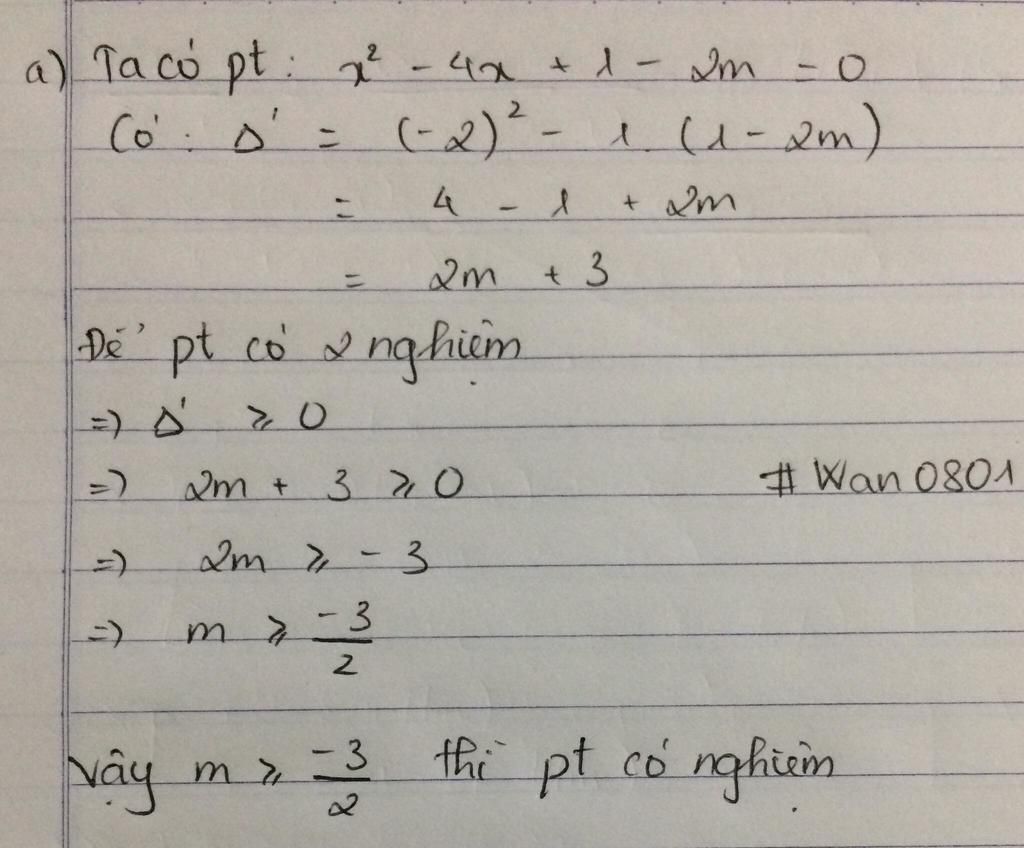 a) Ta có pt: x² - 4x + 1 - 2m = 0
Có: Δ' = (-2)² - 1. (1 - 2m)
= 4 - 1 + 2m
= 2m + 3
Để pt có 2 nghiệm
=) Δ' ⩾ 0
=) 2m + 3 ⩾ 0 # Wan 0801
=) 2m ⩾ - 3
=) m ⩾ -3/2
Vậy m ⩾ -3/2 thì pt có nghiệm